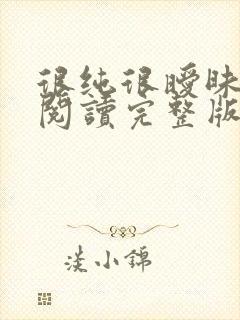 很纯很曖昧
閱讀完整版
淡小錦